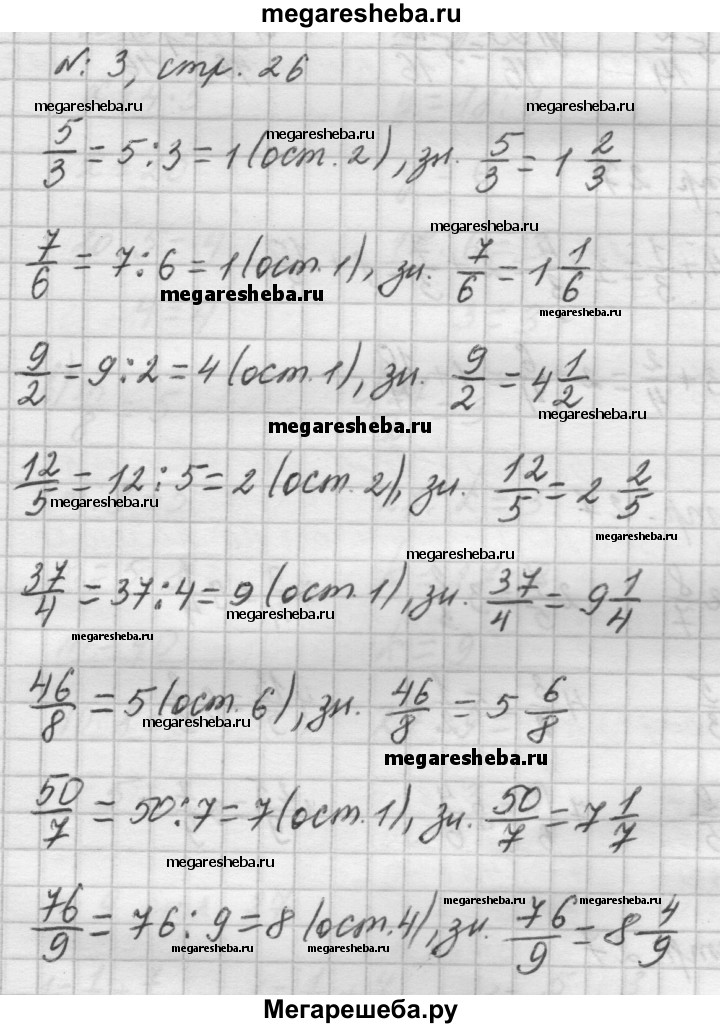 megaresheba.ru
№ 3, стр. 26
megaresheba.ru megaresheba.ru megaresheba.ru
5/3 = 5 : 3 = 1 (ост. 2), зн. 5/3 = 1 2/3
megaresheba.ru
7/6 = 7 : 6 = 1 (ост. 1), зн. 7/6 = 1 1/6
megaresheba.ru megaresheba.ru
9/2 = 9 : 2 = 4 (ост. 1), зн. 9/2 = 4 1/2
megaresheba.ru
megaresheba.ru
12/5 = 12 : 5 = 2 (ост. 2), зн. 12/5 = 2 2/5
megaresheba.ru
megaresheba.ru
megaresheba.ru
37/4 = 37 : 4 = 9 (ост. 1), зн. 37/4 = 9 1/4
megaresheba.ru
megaresheba.ru
46/8 = 5 (ост. 6), зн. 46/8 = 5 6/8
megaresheba.ru
megaresheba.ru
50/7 = 50 : 7 = 7 (ост. 1), зн. 50/7 = 7 1/7
megaresheba.ru
megaresheba.ru megaresheba.ru
76/9 = 76 : 9 = 8 (ост. 4), зн. 76/9 = 8 4/9
megaresheba.ru megaresheba.ru
Мегарешеба.ру